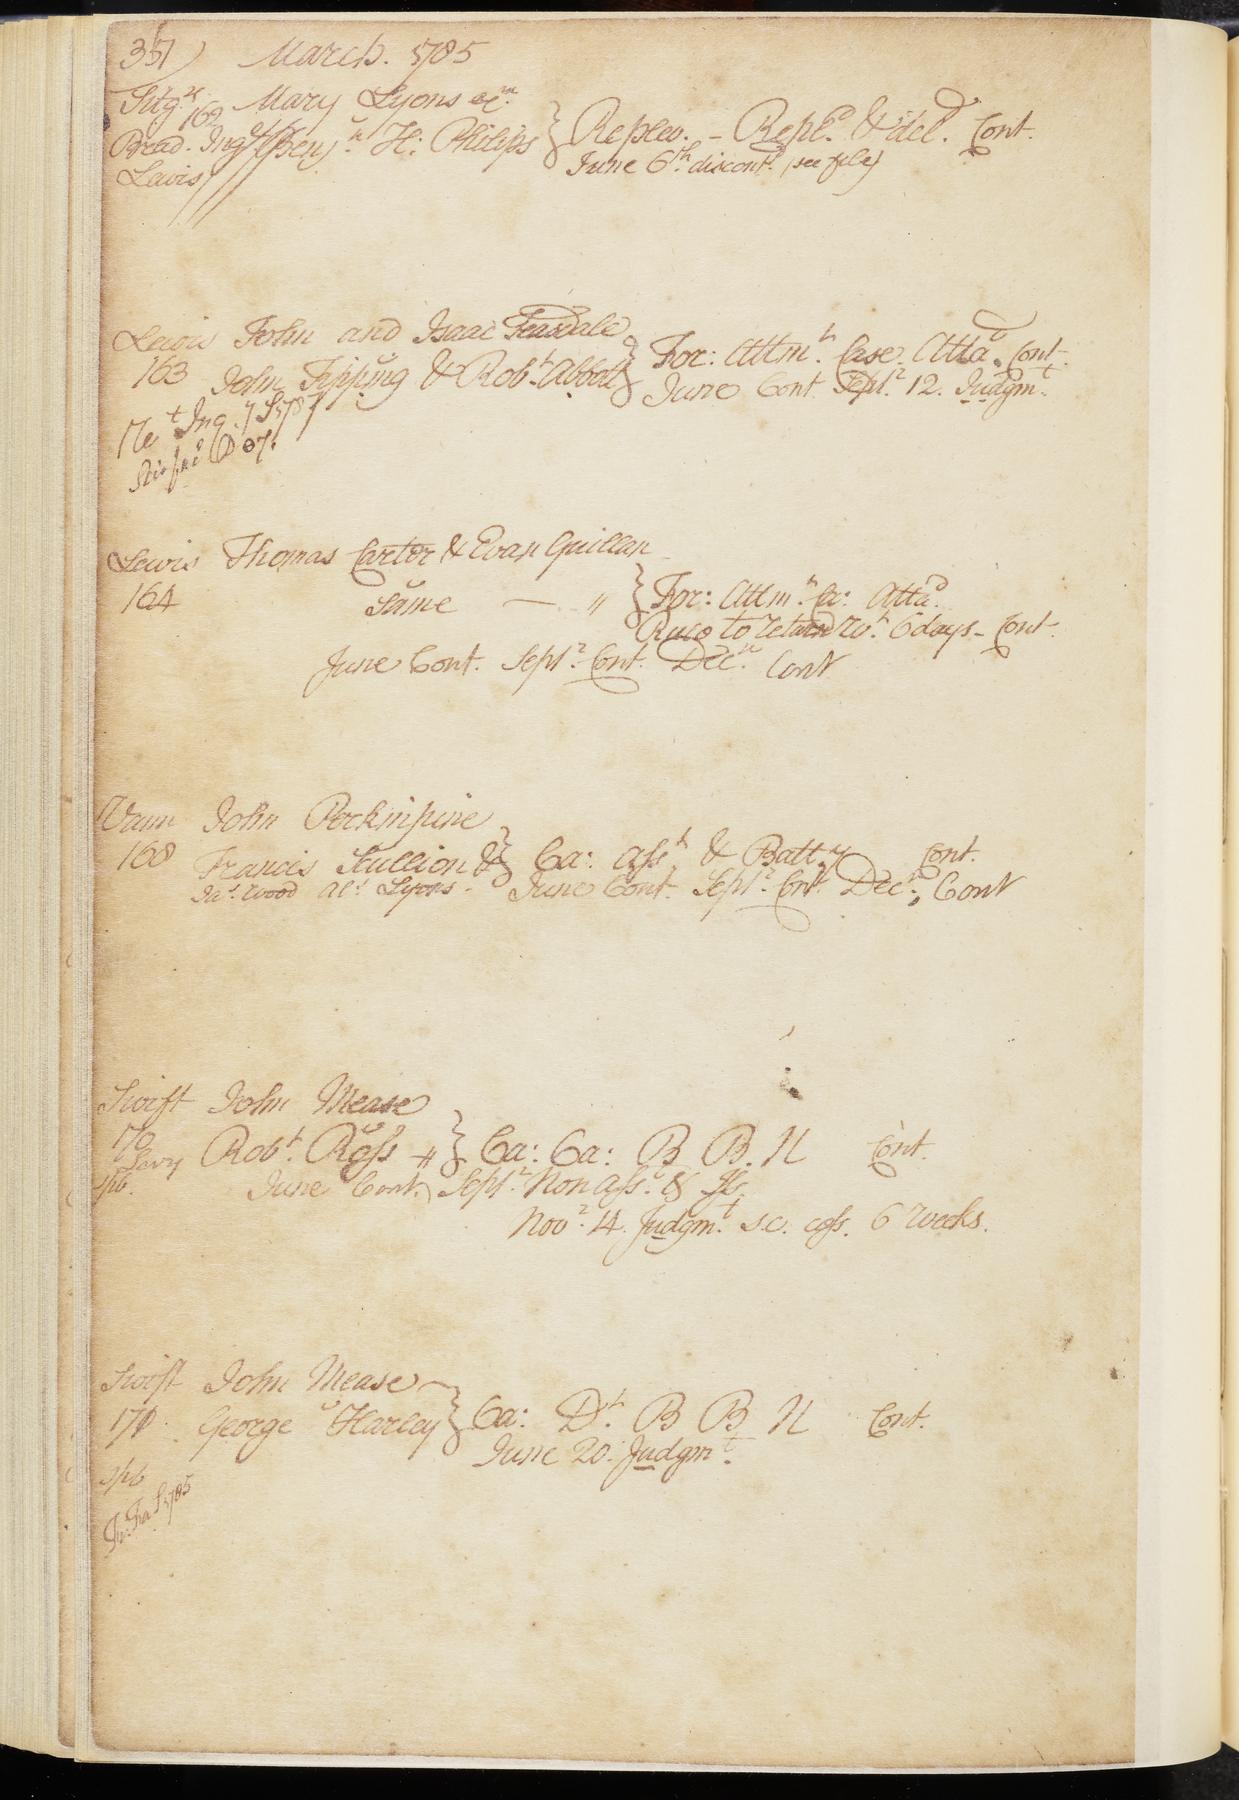 351) March. 1785
Fitzg. Mary Lyons exn.
162
Brad. Ing. v Benjn. H: Philips } Replev. - Repld. & del. Cont.
Lewis June 6th. discontd. (see file)
Lewis John and Isaac Teasdale
163 v John Tipping & Robt. Abbott } For: Attmt. Case. Attad. Cont.
June Cont. Sepr. 12. Judgmt.
Lewis Thomas Carter & Evan Guillan
164 v Same — " } For: Attmt. Ca: Attad.
Rule to return wt. 6 days - Cont.
June Cont. Sepr. Cont. Decr. Cont
Vann John Perkinpine
168 Francis Scullion & } Ca: asst. & Batty Cont.
Jas. Wood als. Lyons - June Cont. Sepr. Cont. Decr. Cont
Swift John Mease
170 v Robt. Ross " } Ca: Ca: B B. N Cont.
Levy
spb. June Cont. Sepr. Non Ass. & Iss.
Novr. 14. Judgmt. s.c. cess. 6 weeks.
Swift John Mease
171 v George Harley } Ca: Dt. B B N Cont.
June 20. Judgmt.
spb
Fi: Fa S 1785